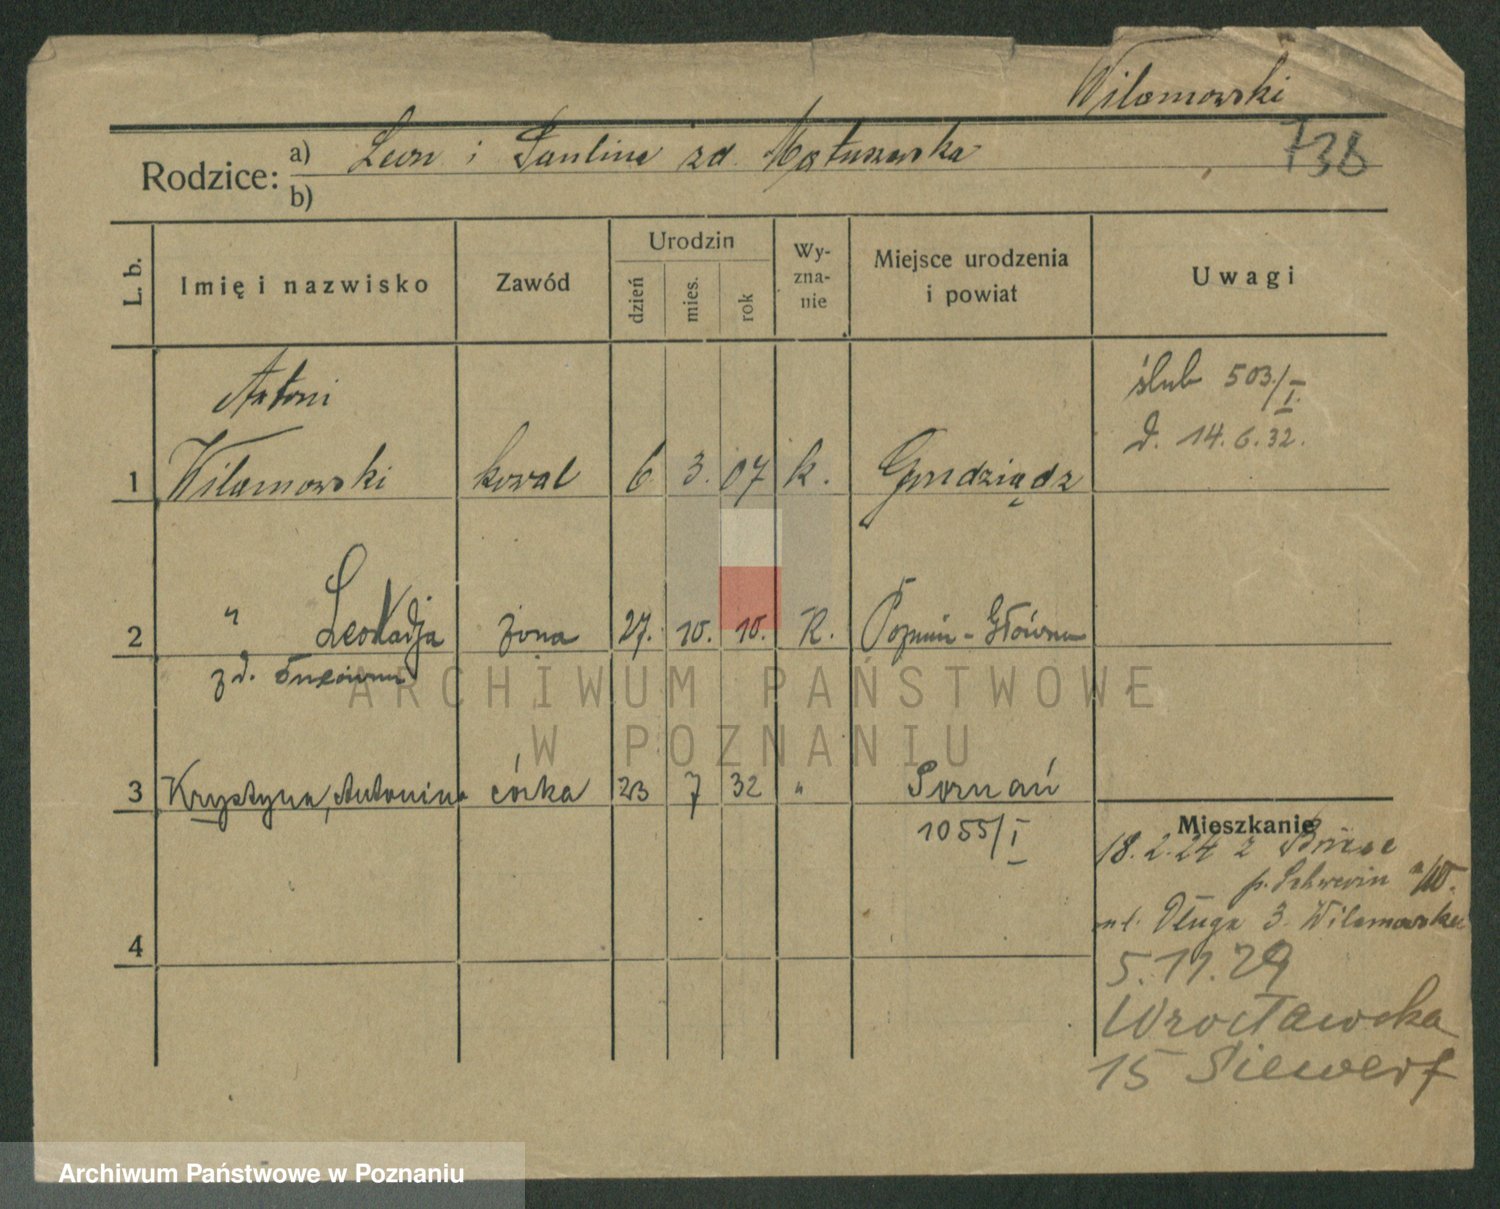 Wilamowski
738
Rodzice: a) Leon i Paulina zd. Matuszewska
b)
L. b.
Imię i nazwisko
Zawód
Urodzin
dzień
mies.
rok
Wy-
zna-
nie
Miejsce urodzenia
i powiat
Uwagi
Antoni
1 Wilamowski kowal 6 3. 07 k. Grudziądz
ślub 503/I.
d. 14.6.32.
2 " Leokadja żona 27. 10. 10. K. Poznań-Główna
zd.
3 Krystyna, Antonina córka 23 7 32 " Poznań
1055/I
4
Mieszkanie
18.2.24 z
p. Schwerin a/W.
ul. Długa 3. Wilamowska
5.11.29
Wrocławska
15 Siewert
ARCHIWUM PAŃSTWOWE
W POZNANIU
Archiwum Państwowe w Poznaniu